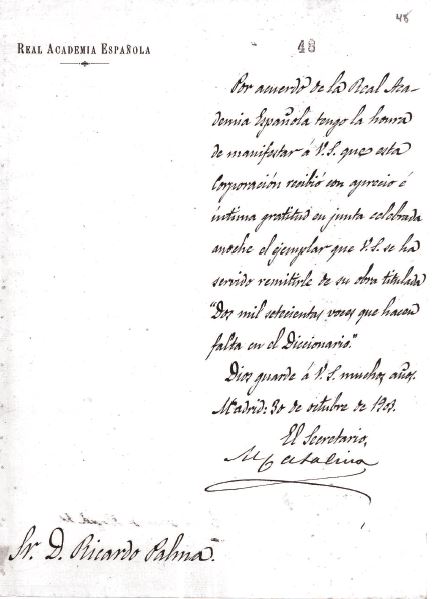 48
REAL ACADEMIA ESPAÑOLA
48
Por acuerdo de la Real Aca-
demia Española tengo la honra
de manifestar á V.S. que esta
Corporación recibió con aprecio é
íntima gratitud en junta celebrada
anoche el ejemplar que V.S. se ha
servido remitirle de su obra titulada
"Dos mil setecientas voces que hacen
falta en el Diccionario."
Dios guarde á V.S. muchos años.
Madrid: 30 de octubre de 1903.
El Secretario,
M Catalina
Sr. D. Ricardo Palma.